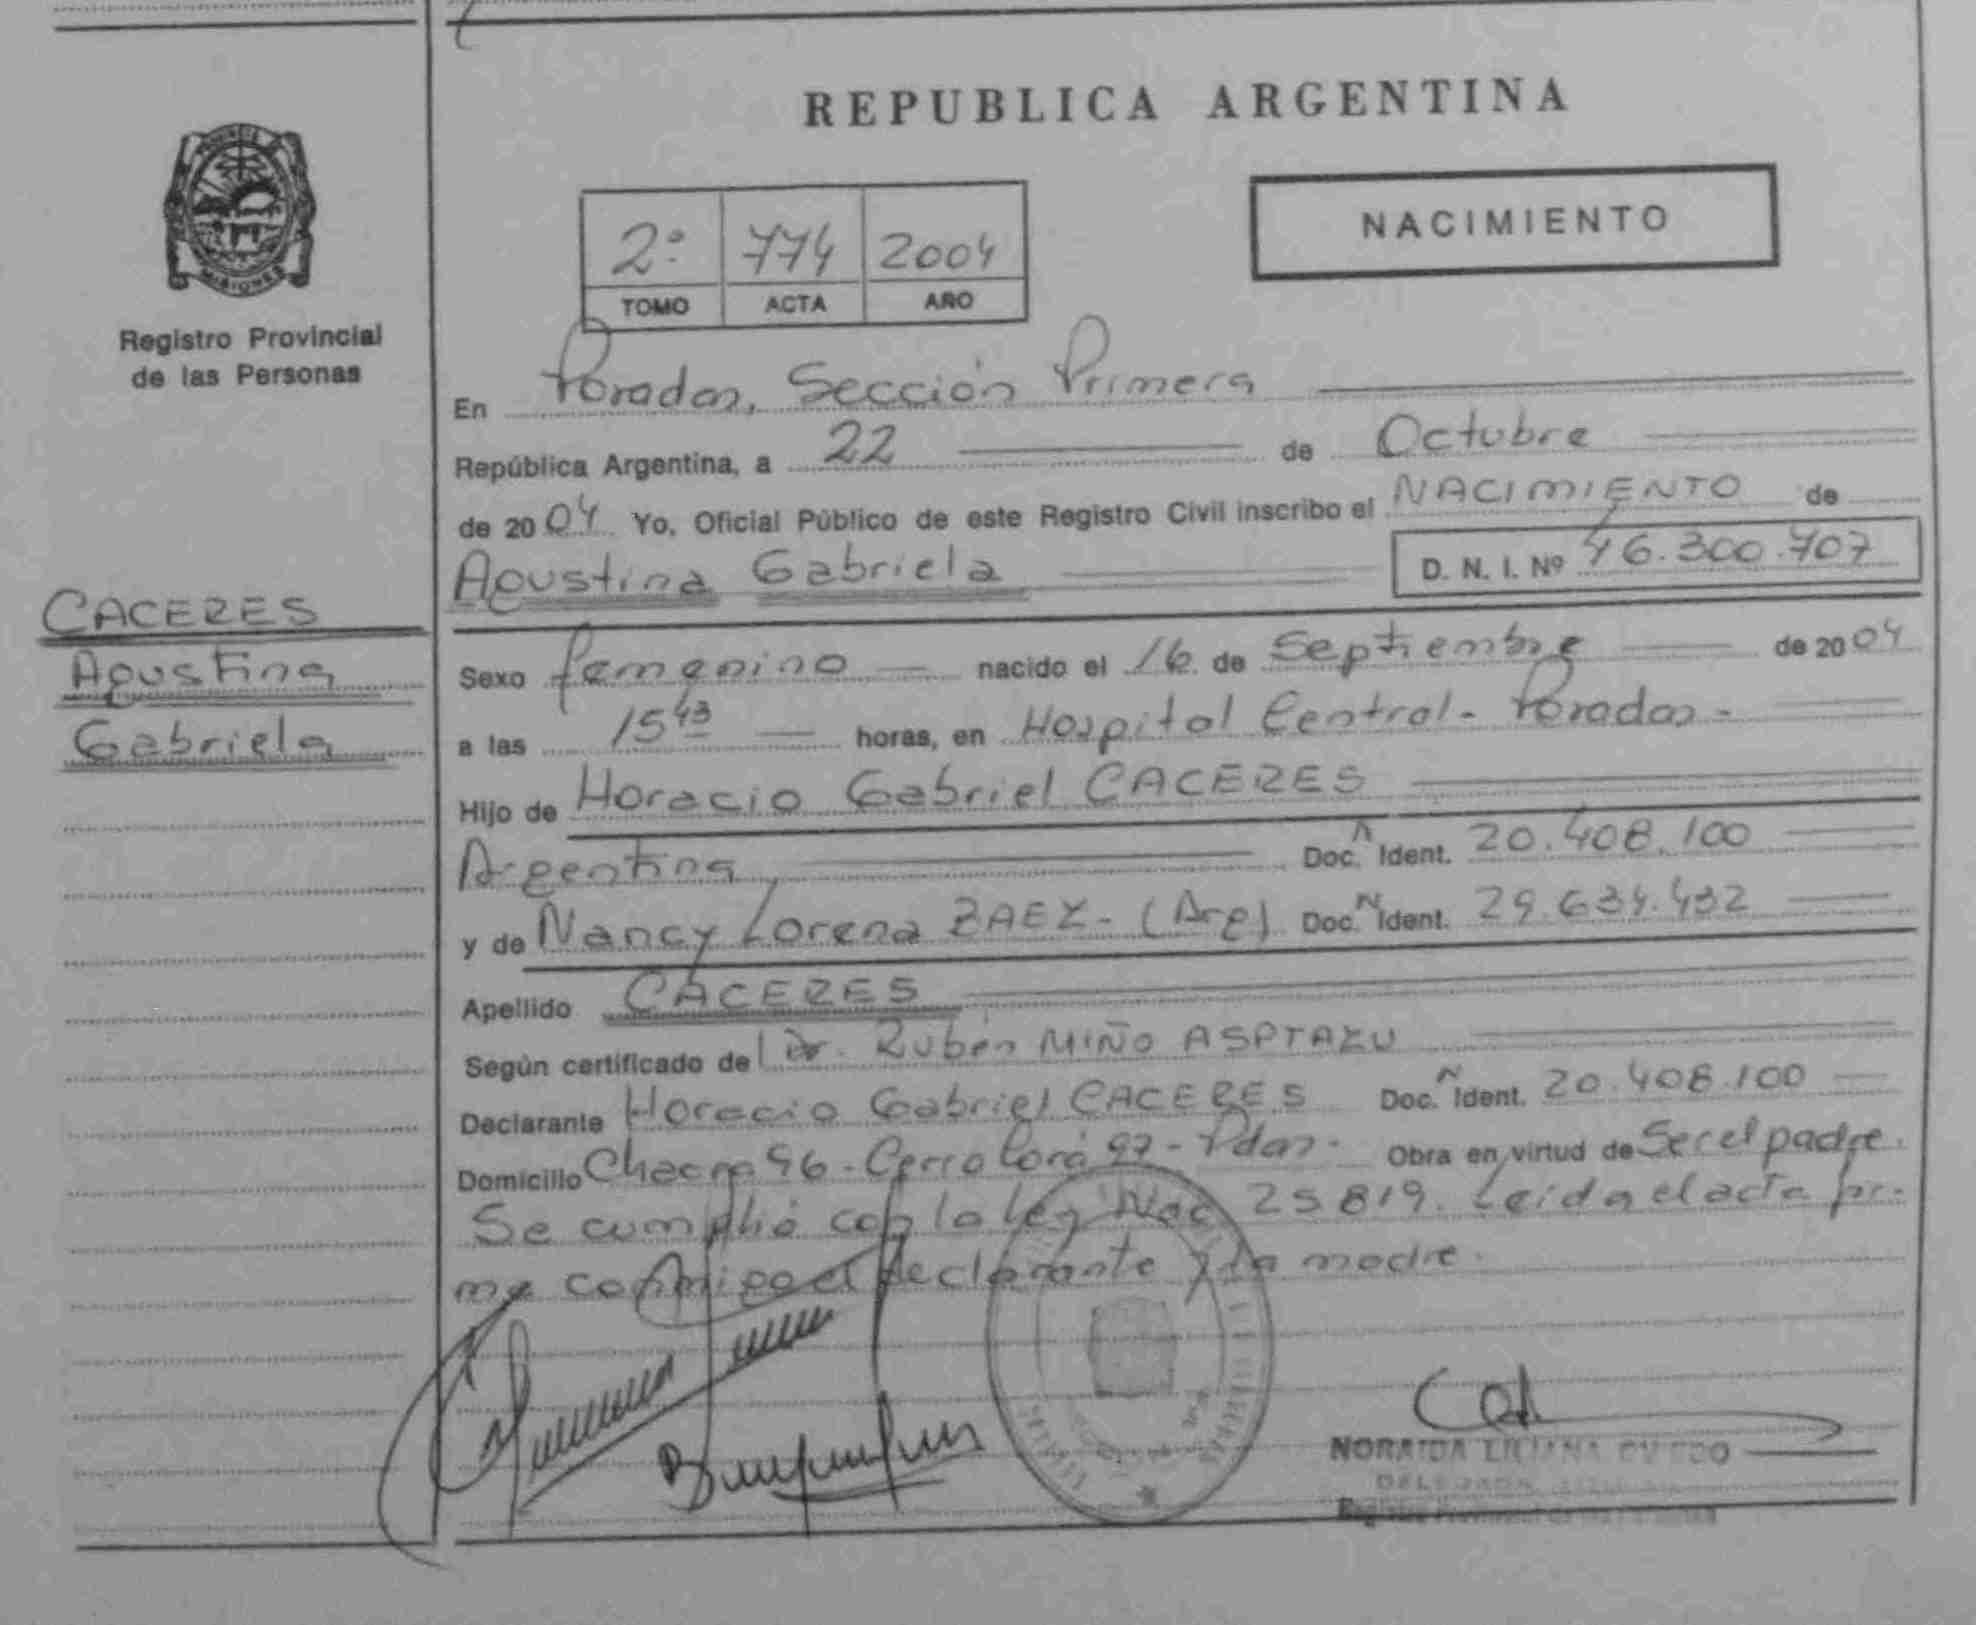 REPUBLICA ARGENTINA
PROVINCIA
MISIONES
Registro Provincial
de las Personas
NACIMIENTO
2º 774 2004
TOMO ACTA AÑO
En Posadas, Sección Primera
República Argentina, a 22 de Octubre
de 2004 Yo, Oficial Público de este Registro Civil inscribo el NACIMIENTO de
Agustina Gabriela D. N. I. Nº 46.300.707
CACERES
Agustina
Gabriela
Sexo femenino nacido el 16 de Septiembre de 2004
a las 15 43 horas, en Hospital Central - Posadas -
Hijo de Horacio Gabriel CACERES
Argentina Doc. Ident. 20.408.100
y de Nancy Lorena BAEZ - (Arg) Doc. Ident. 29.634.432
Apellido CACERES
Según certificado de Dr. Rubén MIÑO
Declarante Horacio Gabriel CACERES Doc. Ident. 20.408.100
Domicilio Chacra 96 - Cerro Corá 97 - Pdas - Obra en virtud de Ser el padre.
Se cumplió con la Ley Nac. 25819. Leída el acta fir-
ma conmigo el declarante y la madre.
NORAIDA LILIANA OVIEDO
DELEGADA
Registro Provincial de las Personas